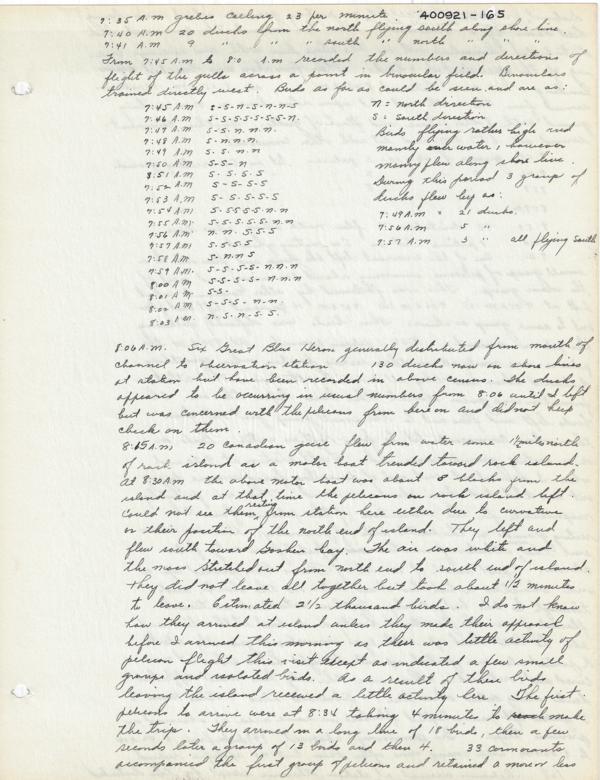 7:35 A.M grebes calling 23 per minute 400921-165
7:40 A.M 20 ducks from the north flying south along shore line.
7:41 A.M 9 " " " south " north " " "
From 7:45 A.M to 8:0 A.M recorded the numbers and directions of
flight of the gulls across a point in binocular field. Binoculars
trained directly west. Birds as far as could be seen and are as:
7:45 A.M S-S-N-S-N-N-S N = north direction
7:46 A.M S-S-S-S-S-S-N. S = South direction
7:47 A.M S-S. N. N. N. Birds flying rather high and
7:48 A.M S-N.N.N. mainly over water, however
7:49 A.M S. S. N.N. many flew along shore line.
7:50 A.M S-S-N During this period 3 groups of
8:51 A.M S. S. S. S ducks flew by as:
7:52 A.M S-S-S.S
7:53 A.M S- S.S.S.S 7:49 A.M " 21 ducks.
7:54 A.M S-S.S.S.S.N.N 7:56 A.M 5 "
7:55 A.M. S-S-S.S.S.N.N 7:57 A.M 3 " all flying south
7:56 A.M N.N. S.S.S
7:57 A.M S.S.S.S
7:58 A.M S-N.N.S
7:59 A.M. S-S-S-S-N.N.N
8:00 A.M S-S-S-S-N.N.N
8:01 A.M S-S-
8:02 A.M S-S-S-N.N.
8:03 A.M N.S-N-S.S.
8:06 A.M. Six Great Blue Heron generally distributed from mouth of
channel to observation station 130 ducks now on shore lines
at station but have been recorded in above census. The ducks
appeared to be occurring in usual numbers from 8:06 until I left
but was concerned with the pelicans from here on and did not keep
check on them.
8:15 A.M. 20 Canadian geese flew from water some 1½ mile north
of rock island as a motor boat trended toward rock island.
At 8:30 A.M the above motor boat was about 8 blocks from the
island and at that time the pelicans on rock island left.
Could not see them resting from station here either due to curvature
or their position of the north end of island. They left and
flew south toward Goshen bay. The air was white and
the mass stretched out from north end to south end of island.
They did not leave all together but took about 1½ minutes
to leave. Estimated 2½ thousand birds. I do not know
how they arrived at island unless they made their approach
before I arrived this morning as there was little activity of
pelican flight this visit except as indicated a few small
groups and isolated birds. As a result of these birds
leaving the island received a little activity here The first
pelicans to arrive were at 8:34 taking 4 minutes to make
the trip. They arrived in a long line of 18 birds, then a few
seconds later a group of 13 birds and then 4. 33 cormorants
accompanied the first group of pelicans and retained a more or less